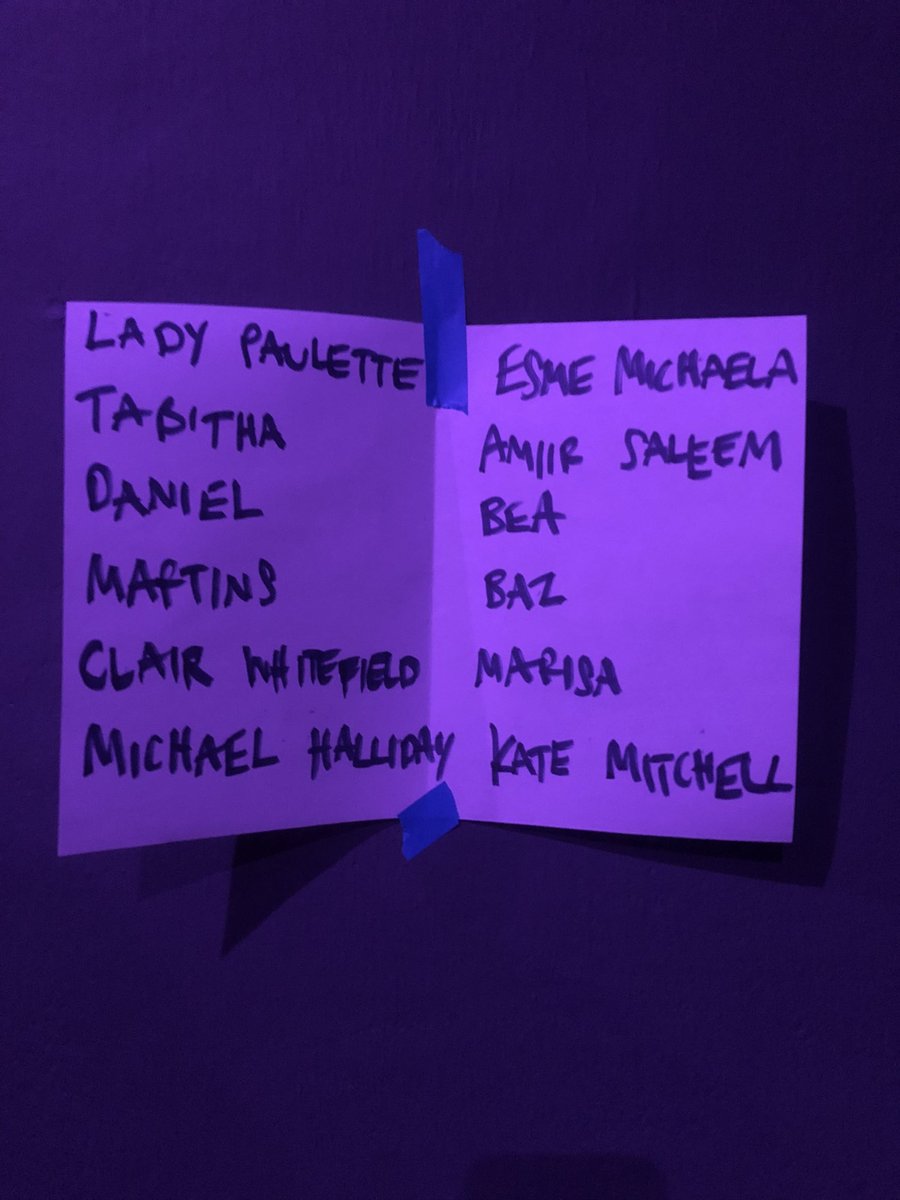 LADY PAULETTE
TABITHA
DANIEL
MARTINS
CLAIR WHITEFIELD
MICHAEL HALLIDAY
ESME MICHAELA
AMIIR SALEEM
BEA
BAZ
MARISA
KATE MITCHELL